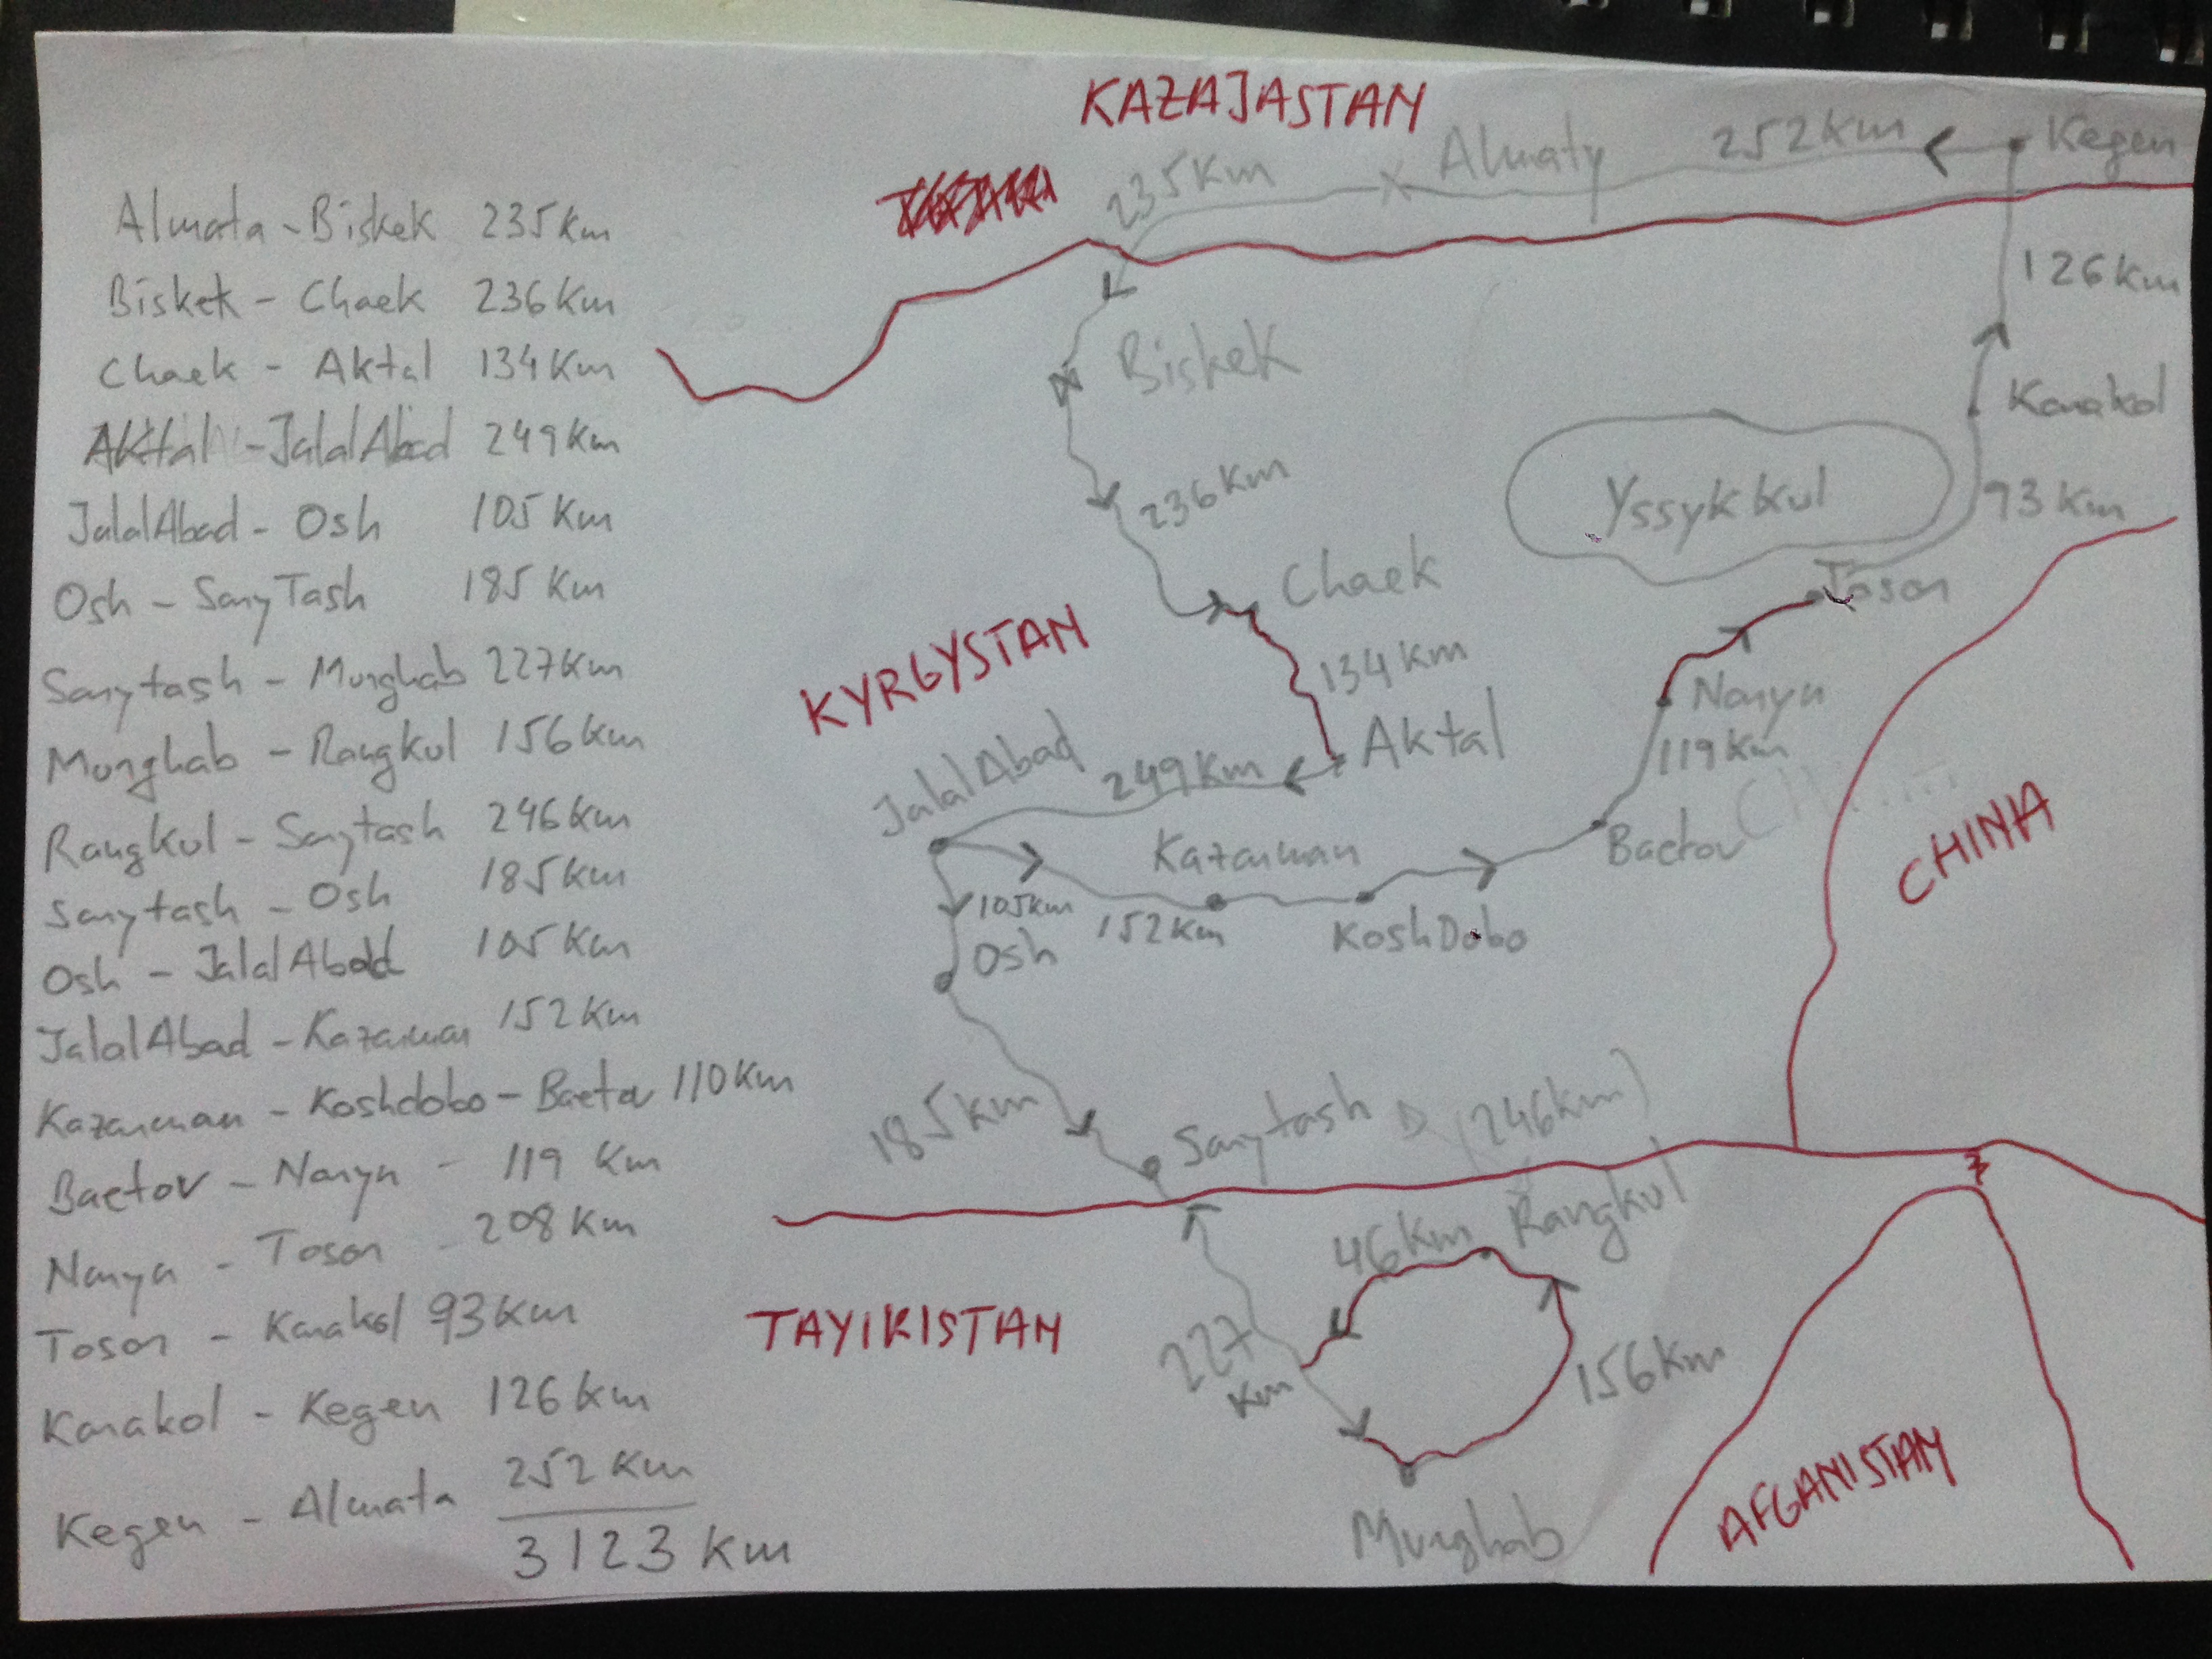 Almata - Biskek 235 Km
Bisket - Chaek 236 Km
Chaek - Aktal 134 Km
Aktal - JalalAbad 249 Km
JalalAbad - Osh 105 Km
Osh - SaryTash 185 Km
Sarytash - Murghab 227 Km
Murghab - Rangkul 156 Km
Rangkul - Sarytash 246 Km
Sarytash - Osh 185 Km
Osh - JalalAbad 105 Km
JalalAbad - Kazarman 152 Km
Kazarman - Koshdobo - Baetov 110 Km
Baetov - Naryn - 119 Km
Naryn - Tosor - 208 Km
Tosor - Karakol 93 Km
Karakol - Kegen 126 Km
Kegen - Almata 252 Km
3123 Km
KAZAJASTAN
235 Km
Almaty
252 Km
Kegen
126 Km
Biskek
Karakol
236 Km
Yssyk Kul
93 Km
Chaek
Tosor
KYRGYSTAN
134 Km
Naryn
JalalAbad
249 Km
Aktal
119 Km
Kazarman
Baetov
CHINA
105 Km
152 Km
Osh
Kosh Dobo
185 Km
Sarytash
(246 Km)
46 Km
Rangkul
TAYIKISTAN
227
Km
156 Km
Murghab
AFGANISTAN